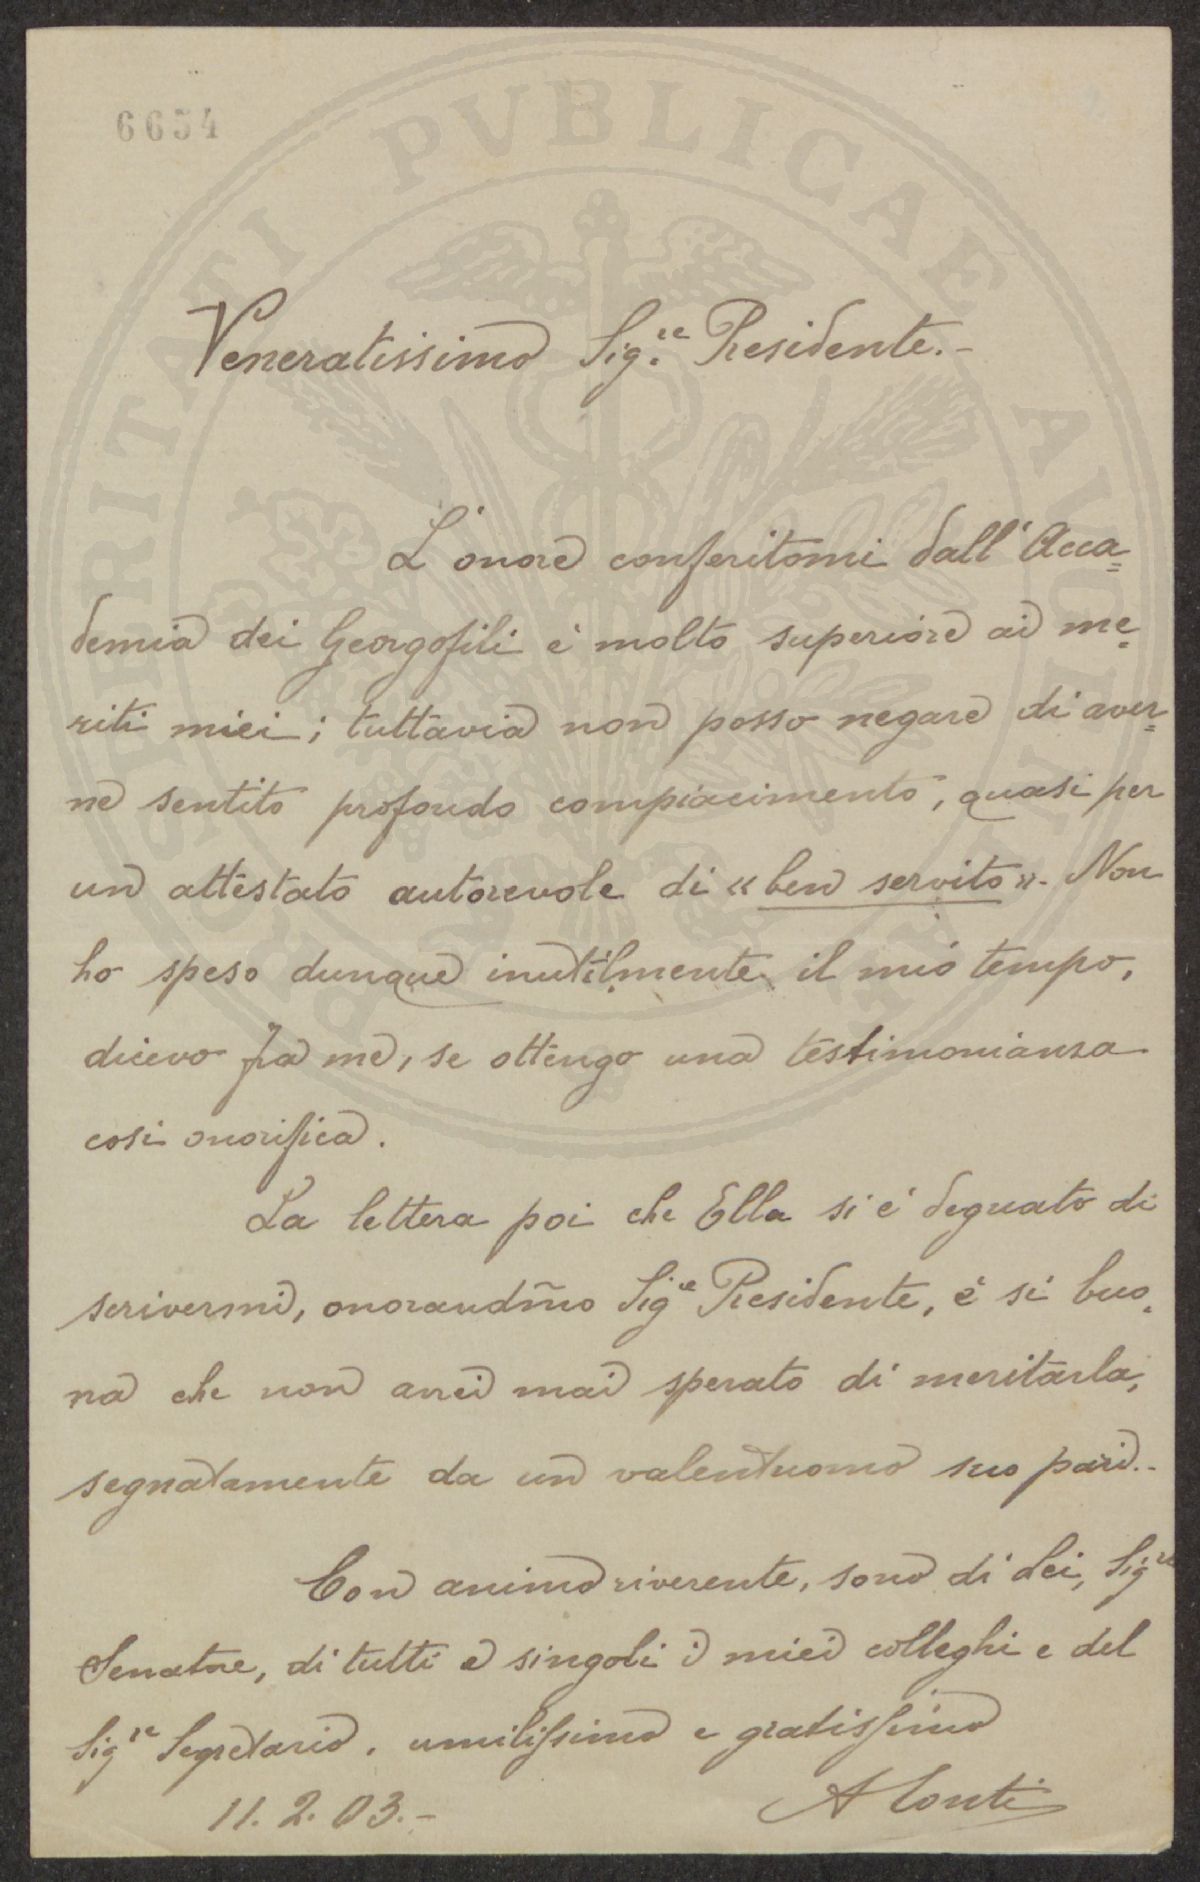 6654
PROSPERITATI PVBLICAE AVGENDAE
Veneratissimo Sig.re Presidente.-
L'onore conferitomi dall'Acca=
demia dei Georgofili è molto superiore ai me=
riti miei; tuttavia non posso negare di aver=
ne sentito profondo compiacimento, quasi per
un attestato autorevole di «ben servito». Non
ho speso dunque inutilmente il mio tempo,
dicevo fra me, se ottengo una testimonianza
così onorifica.
La lettera poi che Ella si è degnato di
scrivermi, onorandm̃o Sig.re Presidente, è sì buo=
na che non avrei mai sperato di meritarla,
segnatamente da un valentuomo suo pari.-
Con animo riverente, sono di Lei, Sig.re
Senatore, di tutti e singoli i miei colleghi e del
Sig.re Segretario, umilissimo e gratissimo
11.2.03.- A Conti